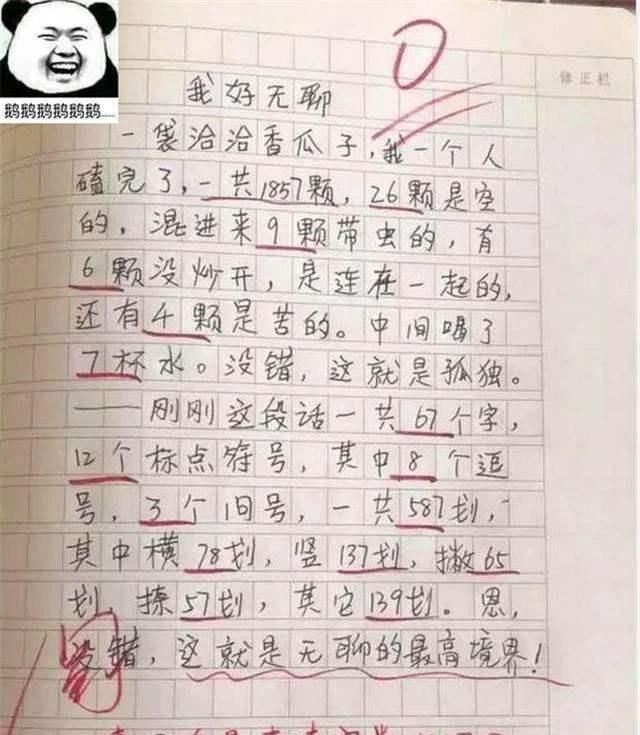 鹅鹅鹅鹅鹅鹅......
0
修正栏
我好无聊
一袋洽洽香瓜子,我一个人
磕完了,一共1857颗,26颗是空
的,混进来9颗带虫的,有
6颗没炒开,是连在一起的,
还有4颗是苦的。中间喝了
7杯水。没错,这就是孤独。
——刚刚这段话一共67个字,
12个标点符号,其中8个逗
号,3个句号,一共587划,
其中横78划,竖137划,撇65
划,捺57划,其它139划。恩,
没错,这就是无聊的最高境界!